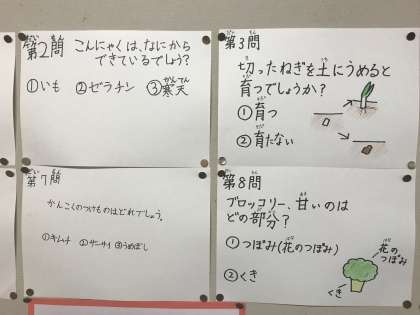 第2問 こんにゃくは、なにから
できているでしょう?
①いも ②ゼラチン ③寒天
第3問
切ったねぎを土にうめると
育つでしょうか?
①育つ
②育たない
第7問
かんこくのつけものはどれでしょう。
①キムチ ②ザーサイ ③うめぼし
第8問
ブロッコリー、甘いのは
どの部分?
①つぼみ(花のつぼみ)
②くき
花の
つぼみ
くき